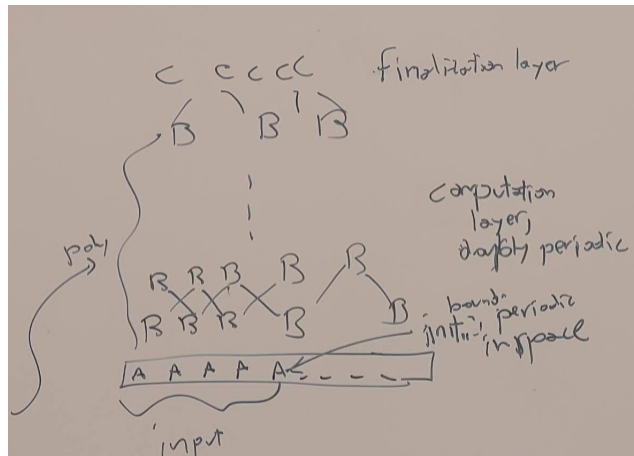 C C C C C finalization layer
B B B
computation
layer,
doubly periodic
poly
B B B B B
B B B B B
periodic
in space
A A A A A
input